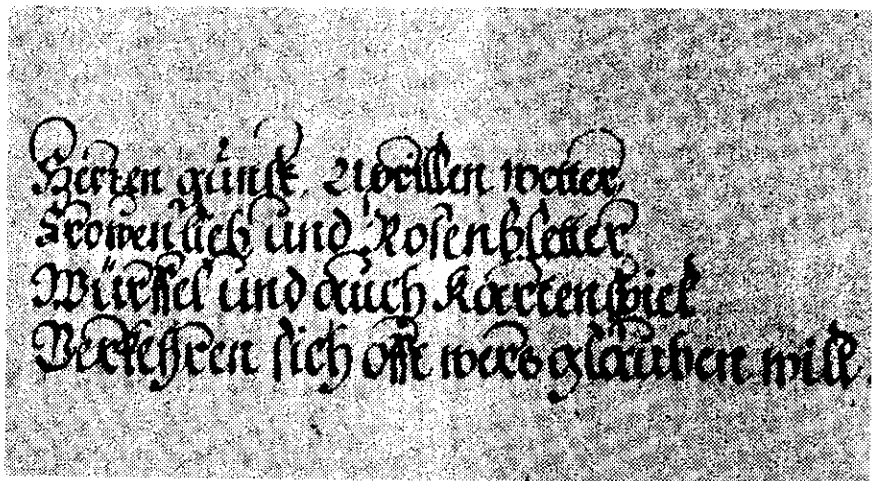 Herren gunst, Abrillen wetter,
Frowen lieb und Rosenbletter
Würffel und auch Kartenspiel
Verkehren sich offt wers glauben will.